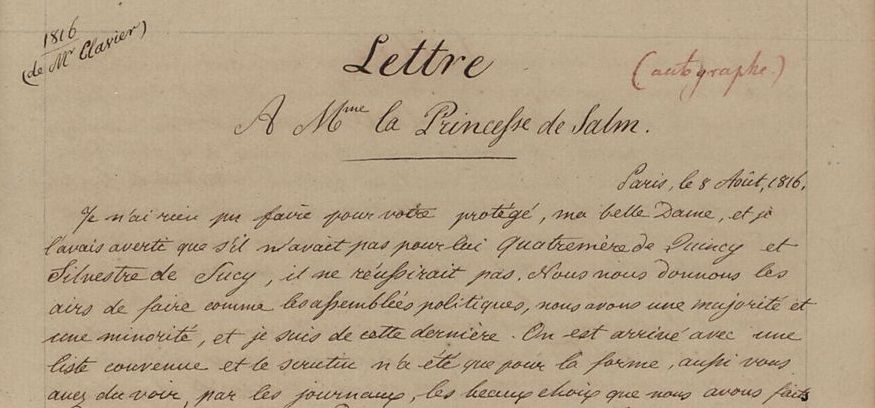 1816
(de Mr Clavier)
Lettre
(autographe.)
A Mme la Princesse de Salm.
Paris, le 8 Août, 1816.
Je n'ai rien pu faire pour votre protégé, ma belle Dame, et je
l'avais averti que s'il n'avait pas pour lui Quatremère de Quincy et
Silvestre de Sacy, il ne réussirait pas. Nous nous donnons les
airs de faire comme les assemblées politiques, nous avons une majorité et
une minorité, et je suis de cette dernière. On est arrivé avec une
liste convenue et le scrutin n'a été que pour la forme, aussi vous
avez du voir, par les journaux, les beaux choix que nous avons faits